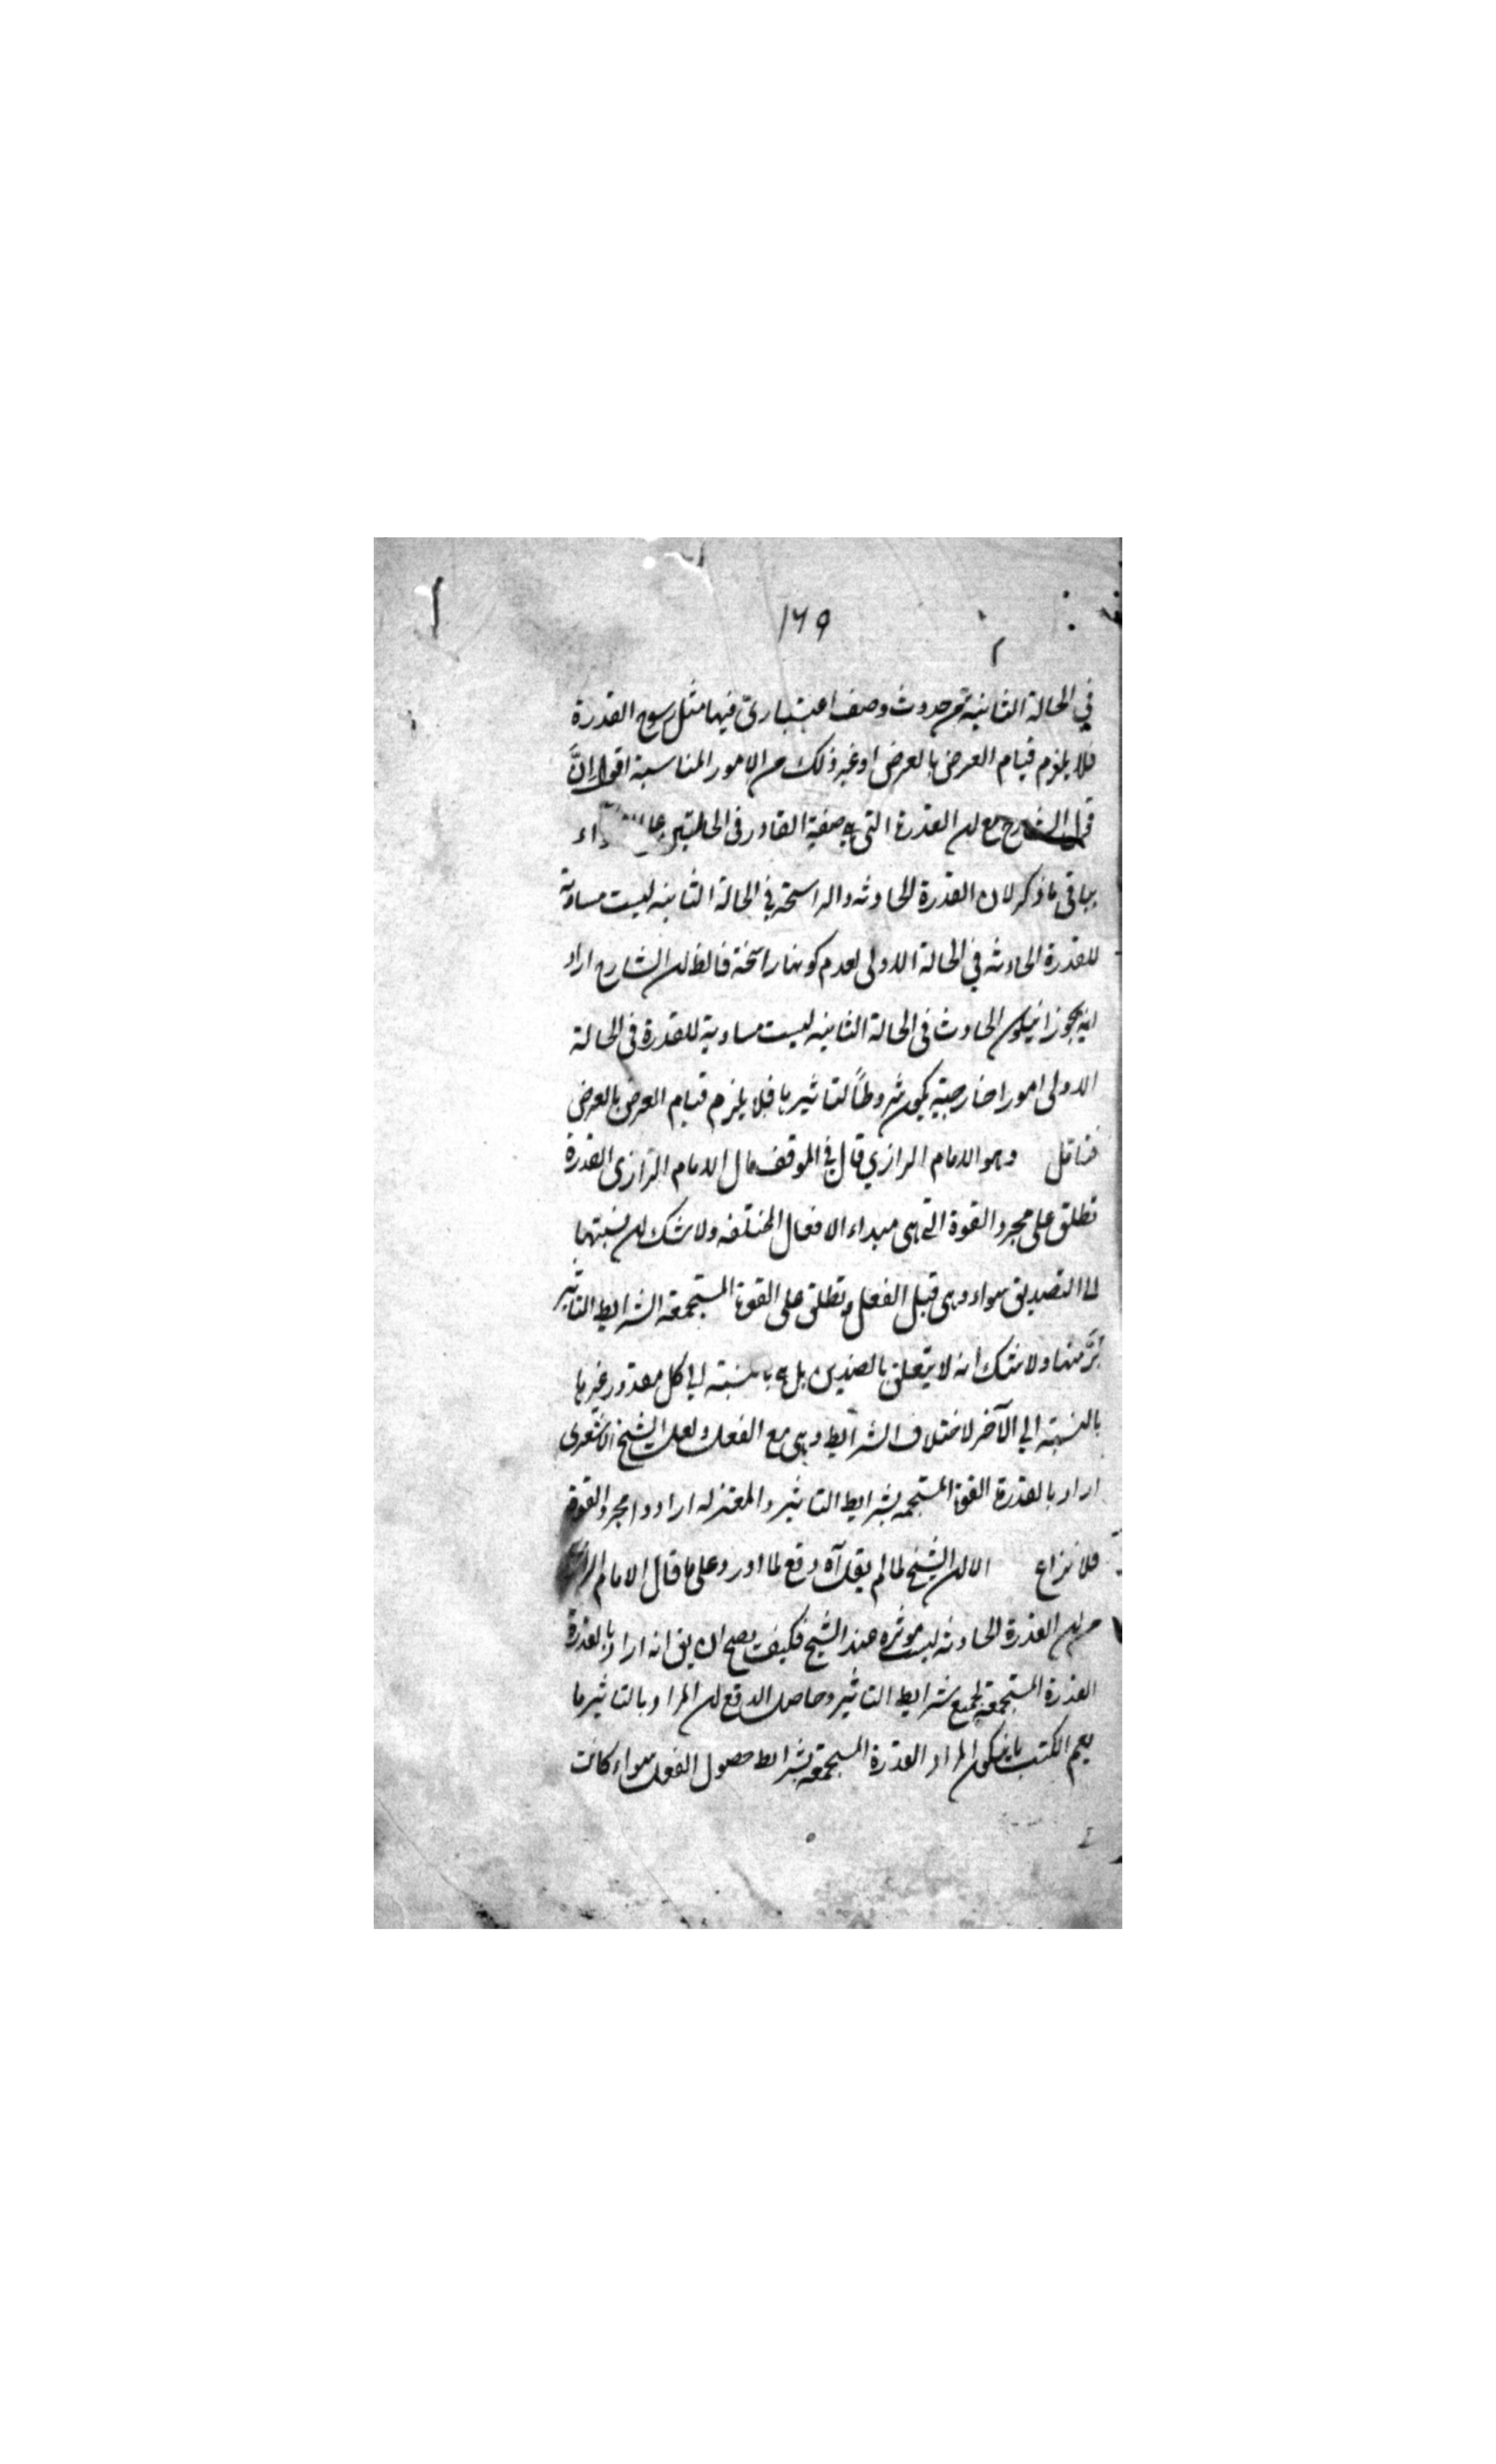 ١٦٩
في الحالة الثانية من حدوث وصف اعتباري فيها مثل رسوخ القدرة
فلا يلزم قيام العرض بالعرض او غير ذلك من الامور المناسبة اقول انَّ
قول الشارح مع ان القدرة التي هي صفة القادر في الحالتين على
ينافي ما ذكر لان القدرة الحادثه والراسخة في الحالة الثانيه ليست مساوية
للقدرة الحادثه في الحالة الاولى لعدم كونها راسخة فالظ ان الشارح اراد
انه يجوز ان يكون الحادث في الحالة الثانيه ليست مساوية للقدرة في الحالة
الاولى امورا خارجية يكون شروطاً لتاثيرها فلا يلزم قيام العرض بالعرض
فتامل وهو الامام الرازي قال في الموقف قال الامام الرازي القدرة
تطلق على مجرد القوة التي هي مبداء الافعال المختلفه ولا شك ان نسبتها
الى التصديق سواء وهي قبل الفعل وتطلق على القوة المستجمعة الشرايط التاثير
ولا شك انه لا يتعلق بالضدين بل هي بالنسبته الى كل مقدور غيرها
بالنسبته الى الآخر لاختلاف الشرايط وهي مع الفعل ولعل الشيخ الاشعرى
اراد بالقدرة القوة المستجمعه بشرايط التاثير والمعتزله ارادوا مجرد القوة
فلا نزاع الا ان الشيخ لما لم يقل آه دفع لما اورد على ما قال الامام
من ان القدرة الحادثه ليست موثره عند الشيخ فكيف يصح ان يق انه اراد بالقدرة
القدرة المستجمعة لجميع شرايط التاثير وحاصل الدفع ان المراد بالتاثير ما
يعم الكسب بان يكون المراد القدرة المستجمعة بشرايط حصول الفعل سواء كانت